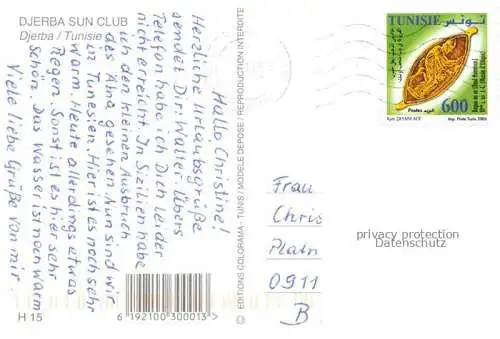 DJERBA SUN CLUB
Djerba / Tunisie
Hallo Christine!
Herzliche Urlaubsgrüße
sendet Dir: Walter. Übers
Telefon habe ich Dich leider
nicht erreicht. In Sizilien habe
ich den kleinen Ausbruch
des Ätna gesehen. Nun sind wir
in Tunesien. Hier ist es noch sehr
warm. Heute allerdings etwas
Regen. Sonst ist es hier sehr
schön. Das Wasser ist noch warm
Viele liebe Grüße von mir.
H 15
6 192100 300013 >
© EDITIONS COLORAMA - TUNIS / MODELE DEPOSE / REPRODUCTION INTERDITE
TUNISIE تونس
600
Frau
Chris
Platn
0911
B
privacy protection
Datenschutz